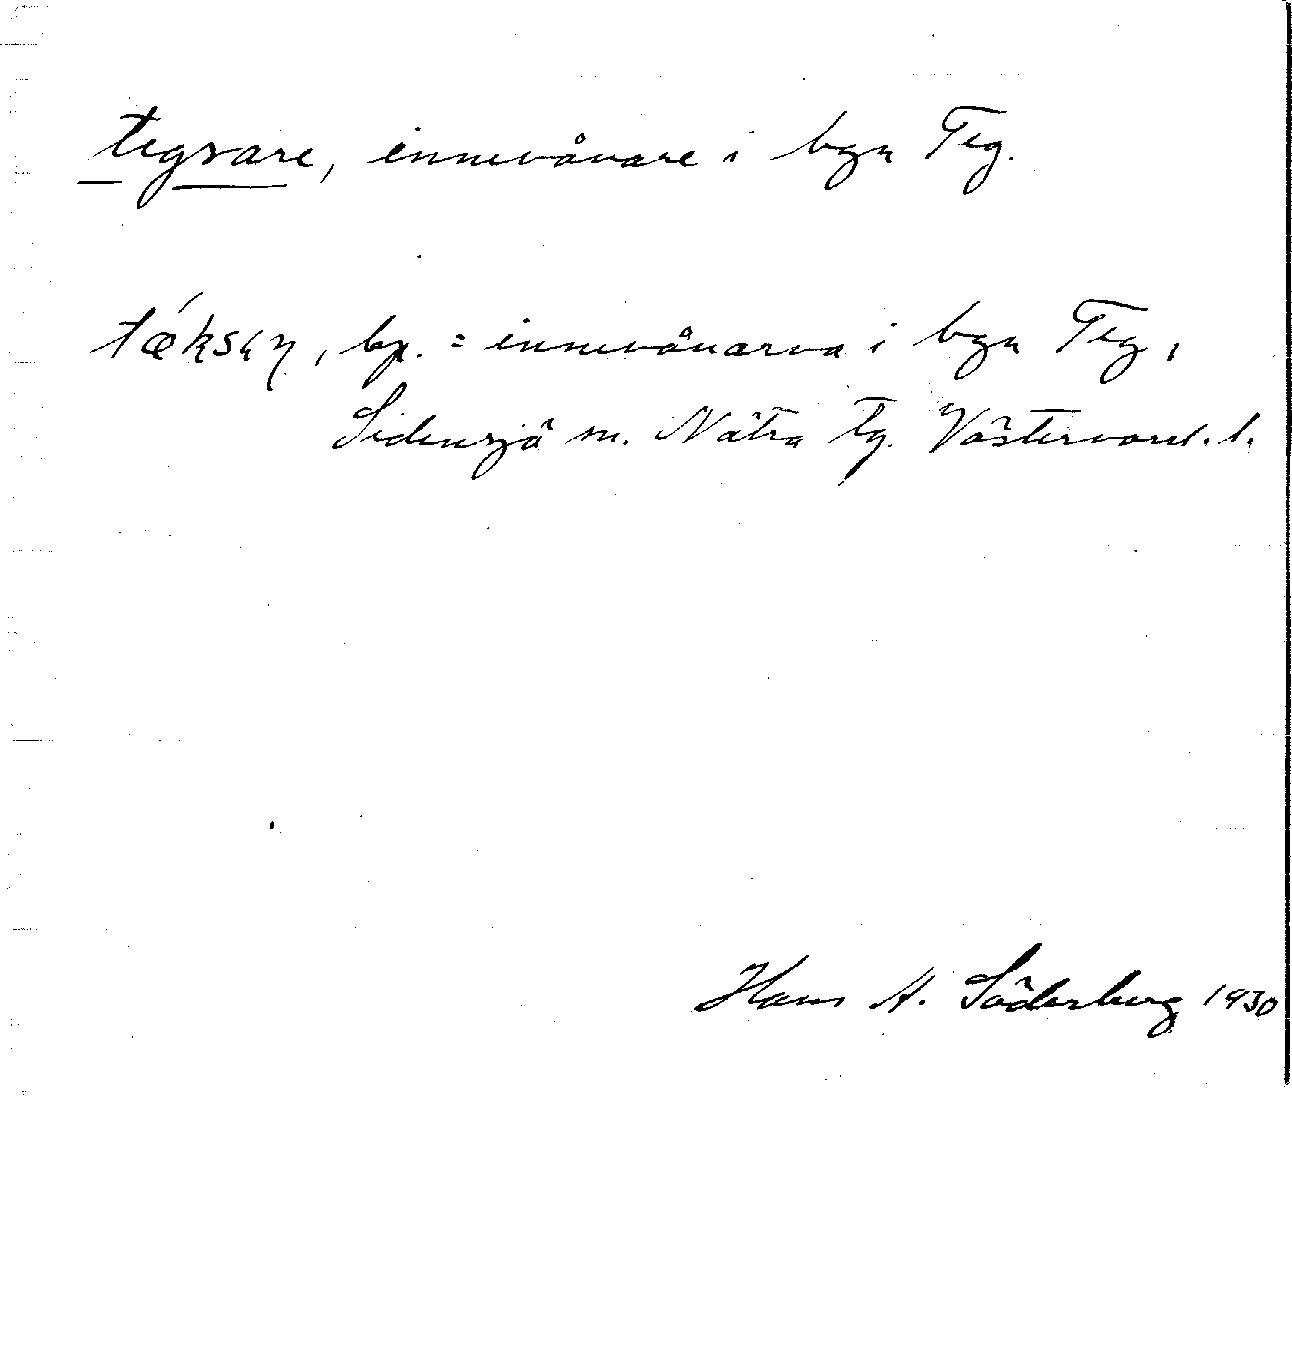 tegsare, innevånare i byn Teg.
bp. = innevånarna i byn Teg,
Sidensjö sn. Nätra tg. Västernorrl. l.
Hans A. Söderberg 1930